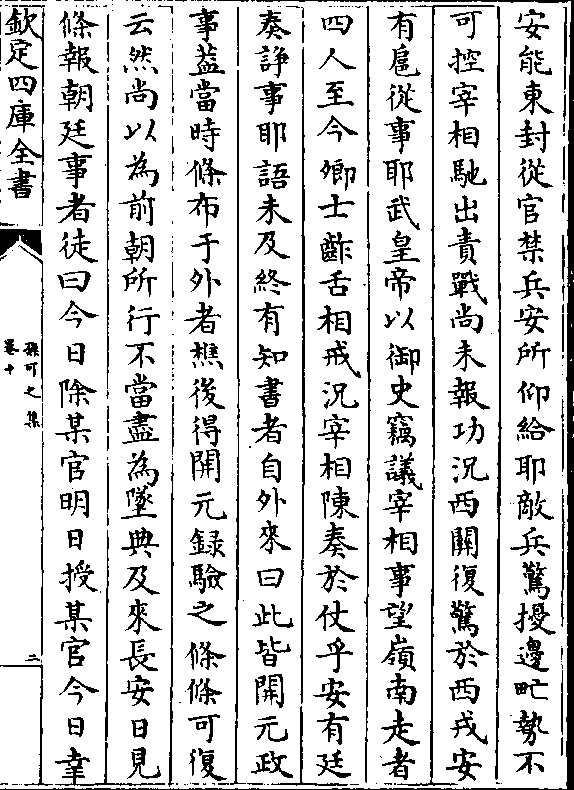 安能東封從官禁兵安所仰給耶敵兵驚擾邊甿勢不
可控宰相馳出責戰尚未報功況西關復驚於西戎安
有扈從事耶武皇帝以御史竊議宰相事望嶺南走者
四人至今卿士齰舌相戒況宰相陳奏於仗乎安有廷
奏諍事耶語未及終有知書者自外來曰此皆開元政
事葢當時條布于外者樵後得開元録驗之條條可復
云然尚以為前朝所行不當盡為墜典及來長安日見
條報朝廷事者徒曰今日除某官明日授某官今日幸
欽定四庫全書
孫可之集
卷十
二